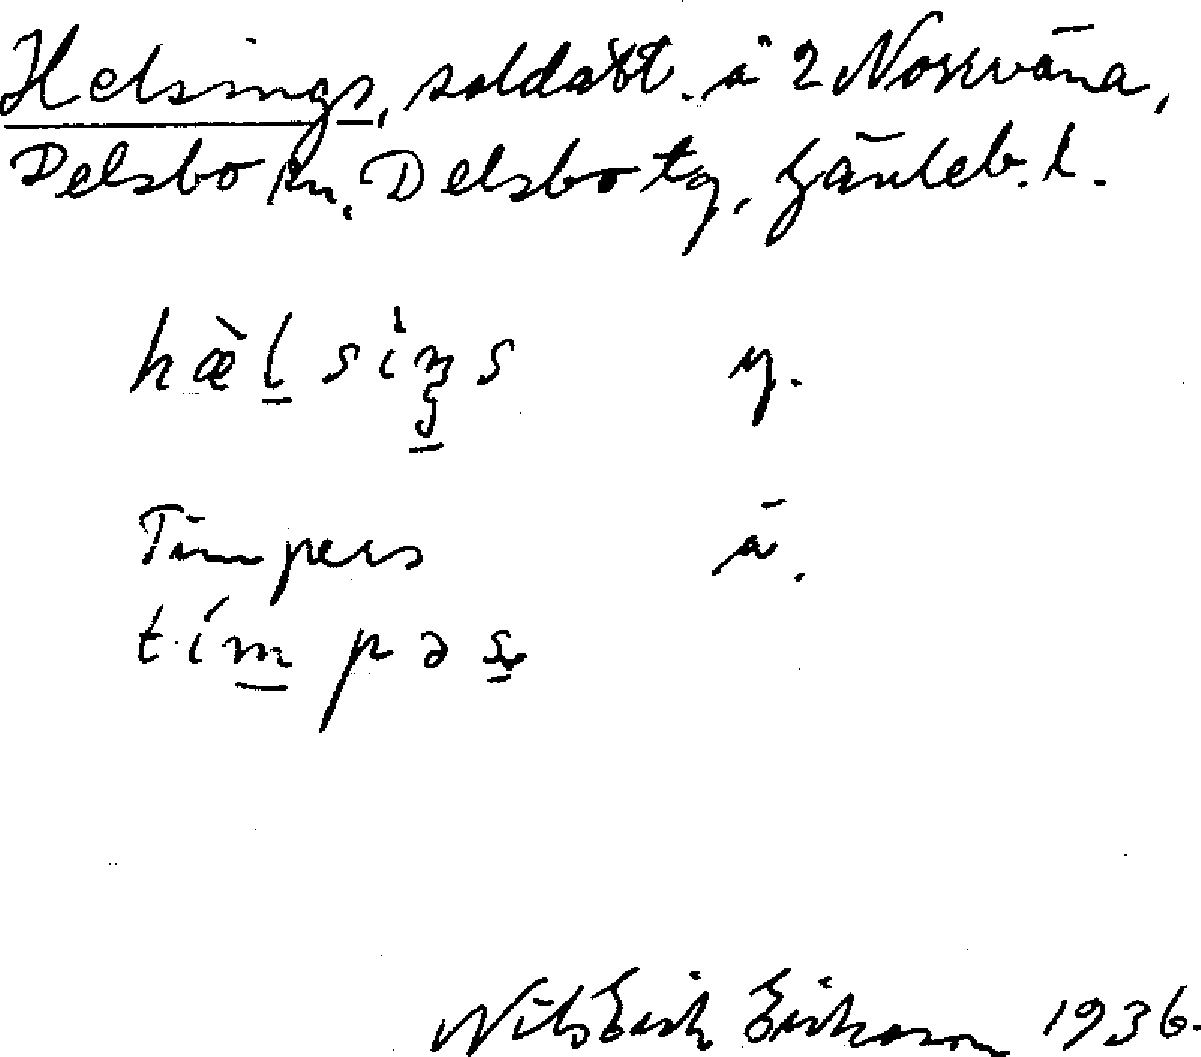 Helsings, soldatst. å 2 Norrväna,
Delsbo sn, Delsbo tg, Gävleb. l.
hæ̀lsiŋs y.
Timpers ä.
tímpəs
Nils Erik Erikson 1936.